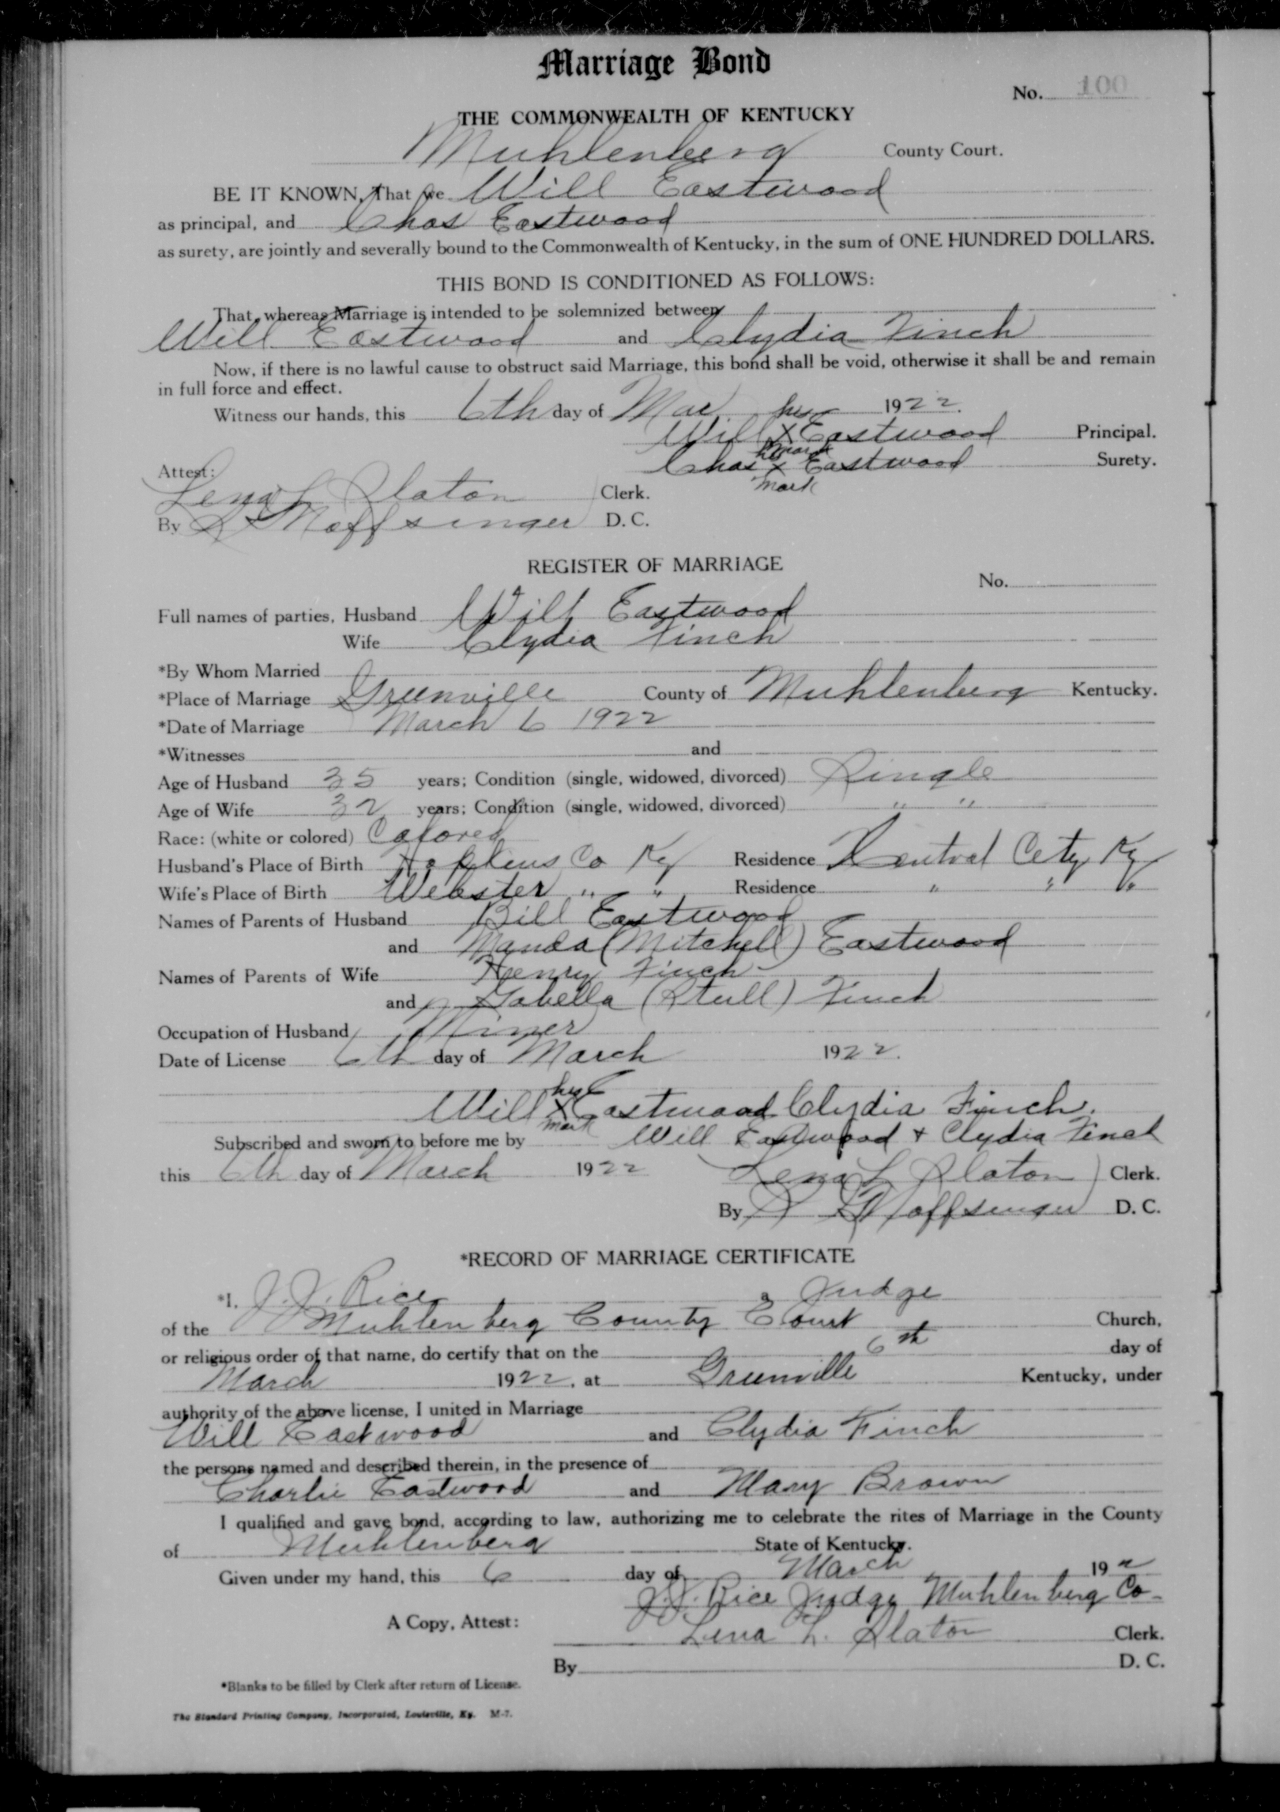 Marriage Bond
No. 100
THE COMMONWEALTH OF KENTUCKY
Muhlenberg County Court.
BE IT KNOWN, That we Will Eastwood
as principal, and Chas Eastwood
as surety, are jointly and severally bound to the Commonwealth of Kentucky, in the sum of ONE HUNDRED DOLLARS.
THIS BOND IS CONDITIONED AS FOLLOWS:
That, whereas Marriage is intended to be solemnized between
Will Eastwood and Clydia Finch
Now, if there is no lawful cause to obstruct said Marriage, this bond shall be void, otherwise it shall be and remain
in full force and effect.
Witness our hands, this 6th day of Mar 1922.
his
Will X Eastwood Principal.
mark
his
Chas X Eastwood Surety.
mark
Attest:
Lena L Slaton Clerk.
By Noffsinger D. C.
REGISTER OF MARRIAGE
No.
Full names of parties, Husband Will Eastwood
Wife Clydia Finch
*By Whom Married
*Place of Marriage Greenville County of Muhlenberg Kentucky.
*Date of Marriage March 6 1922
*Witnesses and
Age of Husband 35 years; Condition (single, widowed, divorced) Single
Age of Wife 32 years; Condition (single, widowed, divorced) " "
Race: (white or colored) Colored
Husband's Place of Birth Hopkins Co Ky Residence Central City Ky
Wife's Place of Birth Webster " " Residence " " "
Names of Parents of Husband Bill Eastwood
and Manda (Mitchell) Eastwood
Names of Parents of Wife Henry Finch
and (Stull) Finch
Occupation of Husband Miner
Date of License 6th day of March 1922.
his
Will X Eastwood Clydia Finch.
mark
Subscribed and sworn to before me by Will Eastwood + Clydia Finch
this 6th day of March 1922 Lena L Slaton Clerk.
By Noffsinger D. C.
*RECORD OF MARRIAGE CERTIFICATE
*I, J. J. Rice a Judge
of the Muhlenberg County Court Church,
or religious order of that name, do certify that on the 6th day of
March 1922, at Greenville Kentucky, under
authority of the above license, I united in Marriage
Will Eastwood and Clydia Finch
the persons named and described therein, in the presence of
Charlie Eastwood and Mary Brown
I qualified and gave bond, according to law, authorizing me to celebrate the rites of Marriage in the County
of Muhlenberg State of Kentucky.
Given under my hand, this 6 day of March 19 22
J. J. Rice Judge Muhlenberg Co.
A Copy, Attest: Lena L. Slaton Clerk.
By D. C.
*Blanks to be filled by Clerk after return of License.
The Standard Printing Company, Incorporated, Louisville, Ky. M-7.